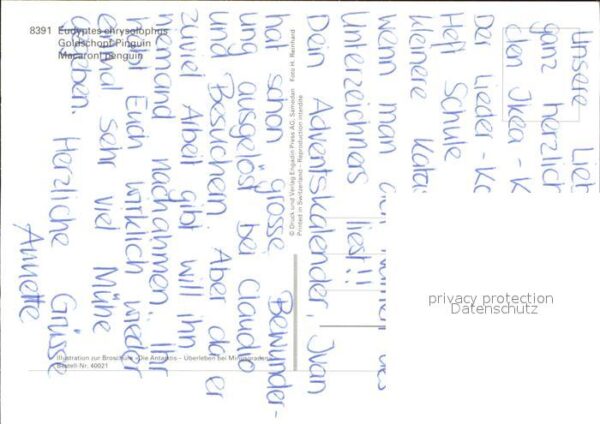 8391 Eudyptes chrysolophus
Goldschopf-Pinguin
Macaroni penguin
Unsere Lie
ganz herzlich
den Ikea - K
Der Lieder - Ko
Hef Schule
kleinere Kata
wenn man
Unterzeichners liest!!!
Dein Adventskalender, Ivan
hat schon grosse Bewunder-
ung ausgelöst bei Claudio
und Besuchern. Aber da er
zuviel Arbeit gibt will ihn
niemand nachahmen. Ihr
habt Euch wirklich wieder
einmal sehr viel Mühe
gegeben. Herzliche Grüsse
Annette
© Druck und Verlag Engadin Press AG, Samedan Foto H. Reinhard
Printed in Switzerland – Reproduction interdite
Illustration zur Broschüre «Die Antarktis – Überleben bei Minusgraden»
Bestell-Nr. 40021
privacy protection
Datenschutz